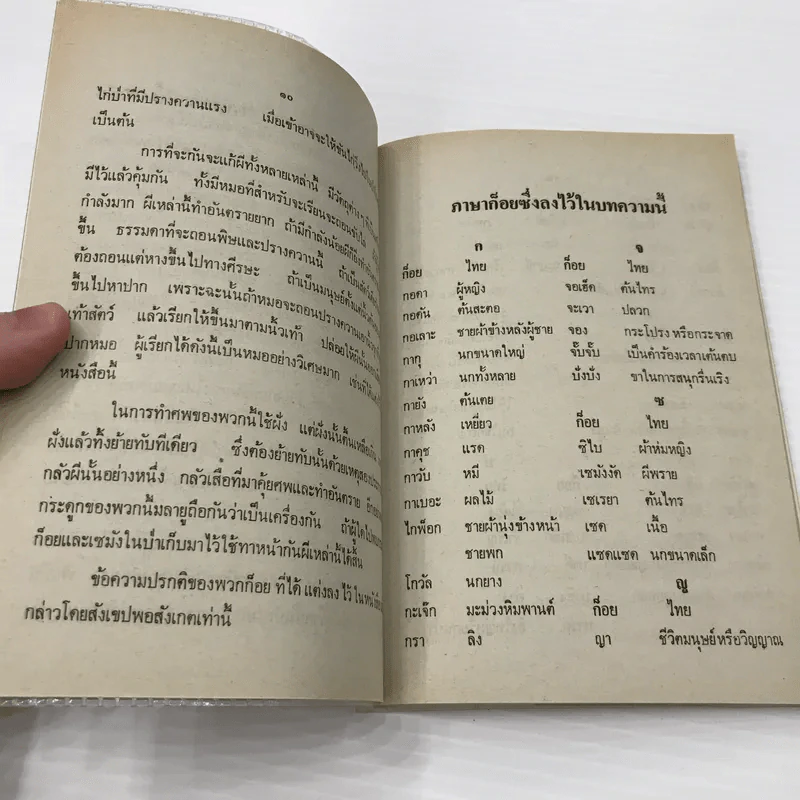 ๑๐
ไก่ป่าที่มีปรางควานแรง เมื่อเข้าอาจจะให้ขันไก่
เป็นต้น
การที่จะกันจะแก้ผีทั้งหลายเหล่านี้ มีวัตถุต่าง ๆ
มีไว้แล้วคุ้มกัน ทั้งมีหมอที่สำหรับจะเรียนจะถอนขับไล่
กำลังมาก ผีเหล่านี้ทำอันตรายยาก ถ้ามีกำลังน้อยผีก็
ขึ้น ธรรมดาที่จะถอนพิษและปรางควานนี้ ถ้าเป็นสัตว์
ต้องถอนแต่หางขึ้นไปทางศีรษะ ถ้าเป็นมนุษย์ตั้งแต่
ขึ้นไปหาปาก เพราะฉะนั้นถ้าหมอจะถอนปรางควาน
เท้าสัตว์ แล้วเรียกให้ขึ้นมาตามนิ้วเท้า ปล่อยให้
ปากหมอ ผู้เรียกได้ดังนี้เป็นหมออย่างวิเศษมาก เช่นที่
หนังสือนี้
ในการทำศพของพวกนี้ใช้ฝัง แต่ฝังนั้นตื้นเหลือเกิน
ฝังแล้วทิ้งย้ายทับทีเดียว ซึ่งต้องย้ายทับนั้นด้วยเหตุสอง
กลัวผีนั้นอย่างหนึ่ง กลัวเสือที่มาคุ้ยศพและทำอันตราย
กระดูกของพวกนี้มลายูถือกันว่าเป็นเครื่องกัน ถ้าผู้ใดไป
ก็อยและเซมังในป่าเก็บมาไว้ใช้ทาหน้ากันผีเหล่านี้ได้สิ้น
ข้อความปรกติของพวกก็อย ที่ได้ แต่งลง ไว้ ในหนังสือ
กล่าวโดยสังเขปพอสังเกตเท่านี้
ภาษาก็อยซึ่งลงไว้ในบทความนี้
ก จ
ก็อย ไทย ก็อย ไทย
กอดา ผู้หญิง จอเฮ็ด ต้นไทร
กอตัน ต้นสะตอ จะเวา ปลวก
กอเลาะ ชายผ้าข้างหลังผู้ชาย จอง กระโปรง หรือกระจาด
กากุ นกขนาดใหญ่ จั๊บจั๊บ เป็นคำร้องเวลาเต้นตบ
กาเหว่า นกทั้งหลาย บั่งบั่ง ขาในการสนุกรื่นเริง
กายัง ต้นเตย ซ
กาหลัง เหยี่ยว ก็อย ไทย
กาคุช แรด ซิไบ ผ้าห่มหญิง
กาวับ หมี เซมังงัด ผีพราย
กาเบอะ ผลไม้ เซเรยา ต้นไทร
ไกพ็อก ชายผ้านุ่งข้างหน้า เซด เนื้อ
ชายพก แซดแซด นกขนาดเล็ก
โกวัล นกยาง ญ
กะเจ๊ก มะม่วงหิมพานต์ ก็อย ไทย
กรา ลิง ญา ชีวิตมนุษย์หรือวิญญาณ